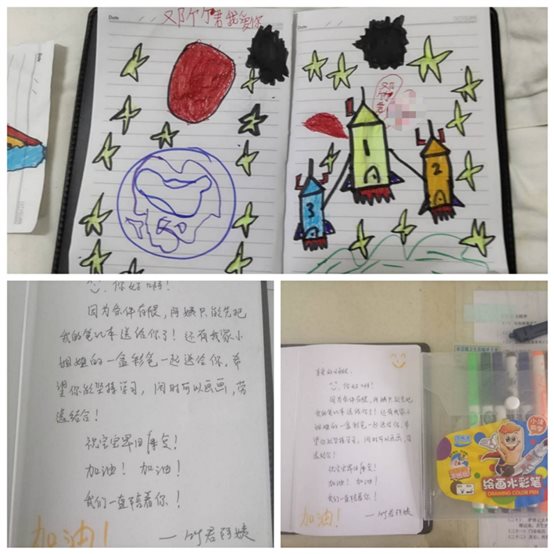 Date
邓竹君我爱你
1
2
3
你好呀!
因为条件有限,阿姨只能先把
我的笔记本送给你了!还有我家小
姐姐的一盒彩笔一起送给你,希
望你能坚持学习,闲时可以画画,劳
逸结合!
祝宝宝早日康复!
加油! 加油!
我们一直陪着你!
加油! —竹君阿姨
你好呀!
因为条件有限,阿姨只能先把
我的笔记本送给你了!还有我家小
姐姐的一盒彩笔一起送给你,希
望你能坚持学习,闲时可以画画,劳
逸结合!
祝宝宝早日康复!
加油! 加油!
我们一直陪着你!
加油! —竹君阿姨
绘画水彩笔
DRAWING COLOR PEN